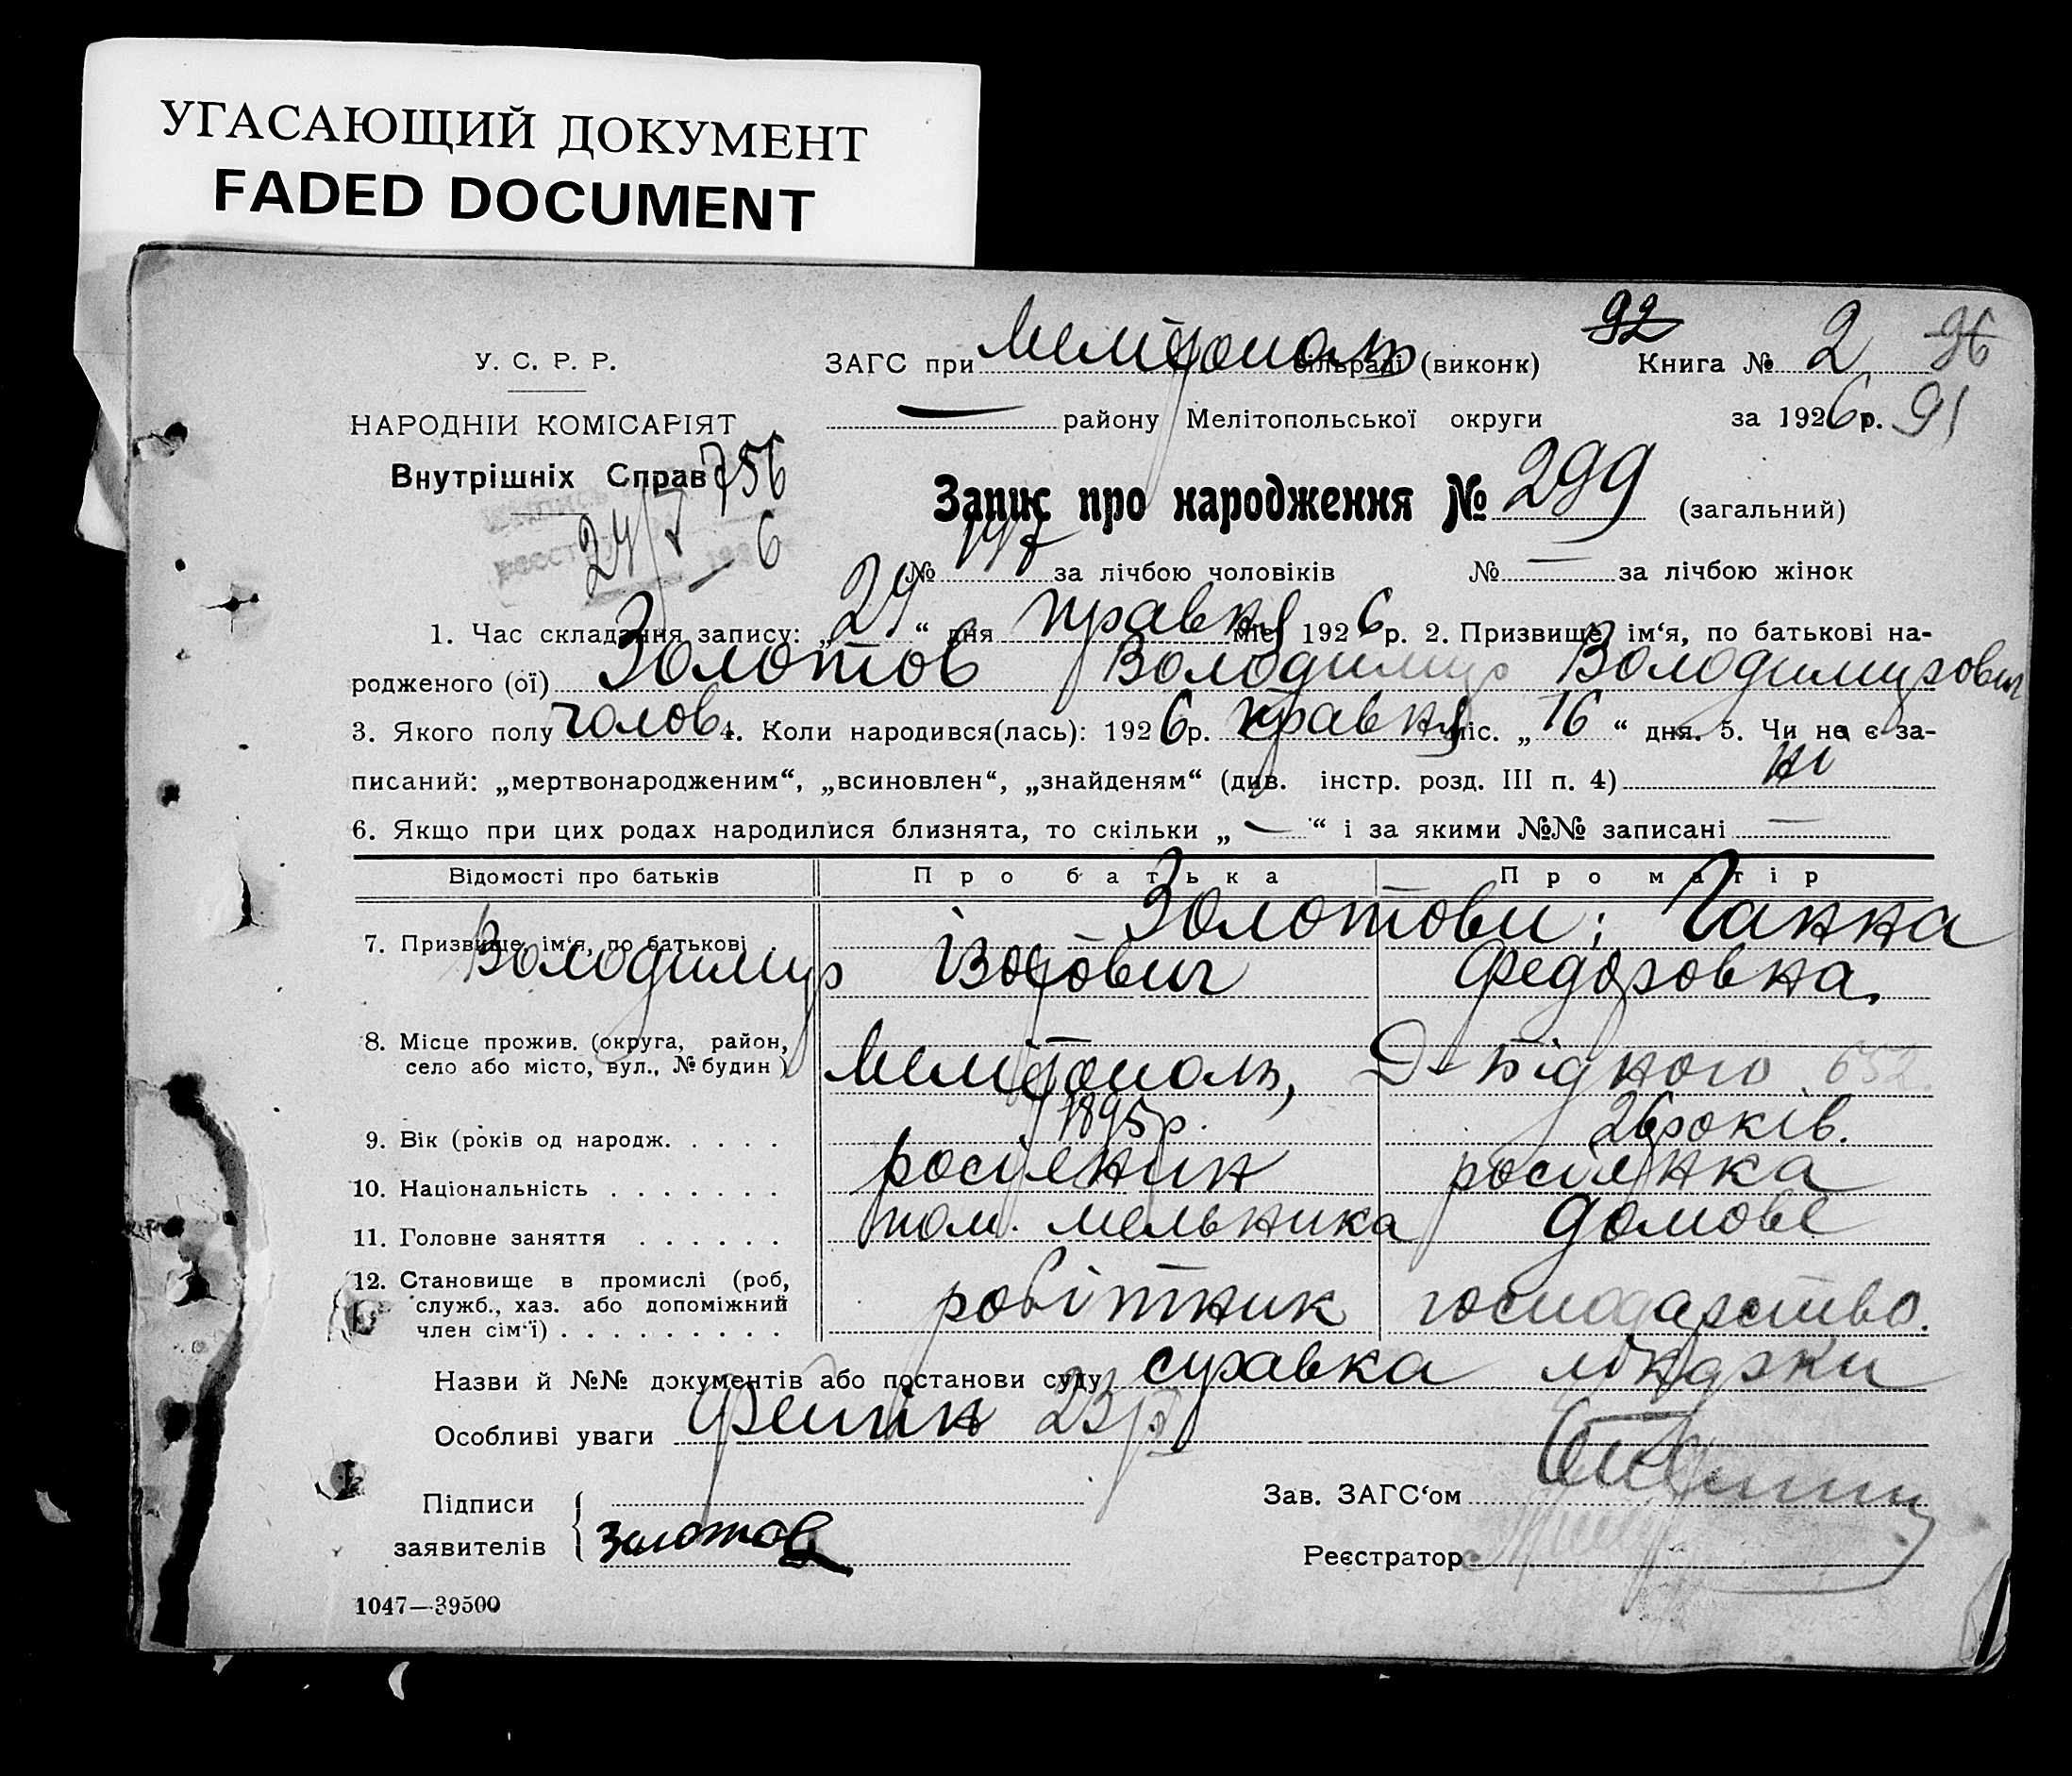 УГАСАЮЩИЙ ДОКУМЕНТ
FADED DOCUMENT
У. С. Р. Р.
НАРОДНІЙ КОМІСАРІЯТ
Внутрішніх Справ 756
24/V 6
ЗАГС при Мелітополь (виконк) 92 Книга № 2 96
— району Мелітопольської округи за 1926 р. 91
Запис про народження № 299 (загальний)
№ 147 за лічбою чоловіків № — за лічбою жінок
1. Час складання запису: „ 24 “ дня травня міс. 1926 р. 2. Призвище, ім‘я, по батькові на-
родженого (ої) Золотов Володимир Володимирович
3. Якого полу чолов. 4. Коли народився(лась): 1926 р. травня міс. „ 16 “ дня. 5. Чи не є за-
писаний: „мертвонародженим“, „всиновлен“, „знайденям“ (див. інстр. розд. III п. 4) ні
6. Якщо при цих родах народилися близнята, то скільки „ — “ і за якими №№ записані —
Відомості про батьків Про батька Про матір
Золотови; Ганна
7. Призвище, ім‘я, по батькові
Володимир Федоровна.
8. Місце прожив. (округа, район,
село або місто, вул., № будин.) Мелітополь, 652.
9. Вік (років од народж. . . . . 1895 р. 26 років.
10. Національність . . . . . . . росіянин росіянка
11. Головне заняття . . . . . . пом. мельника домове
12. Становище в промислі (роб,
служб., хаз. або допоміжний робітник господарство.
член сім‘ї) . . . . . . . . .
Назви й №№ документів або постанови суду справка
Особливі уваги 23/V
Підписи
заявителів Золотов
Зав. ЗАГС‘ом
Реєстратор
1047—39500